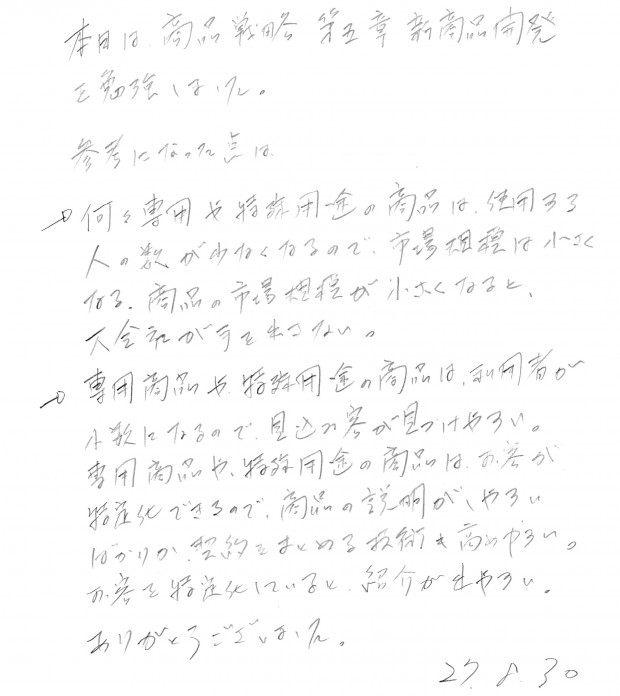 本日は、商品戦略 第五章 新商品開発
を勉強しました。
参考になった点は、
→何々専用や特殊用途の商品は、使用する
人の数が少なくなるので、市場規模は小さく
なる。商品の市場規模が小さくなると、
大会社が手を出さない。
→専用商品や、特殊用途の商品は、利用者が
少数になるので、見込み客が見つけやすい。
専用商品や、特殊用途の商品は、お客が
特定化できるので、商品の説明がしやすい
ばかりか、契約をまとめる技術も高めやすい。
お客を特定化していると、紹介が出やすい。
ありがとうございました。
27.8.30